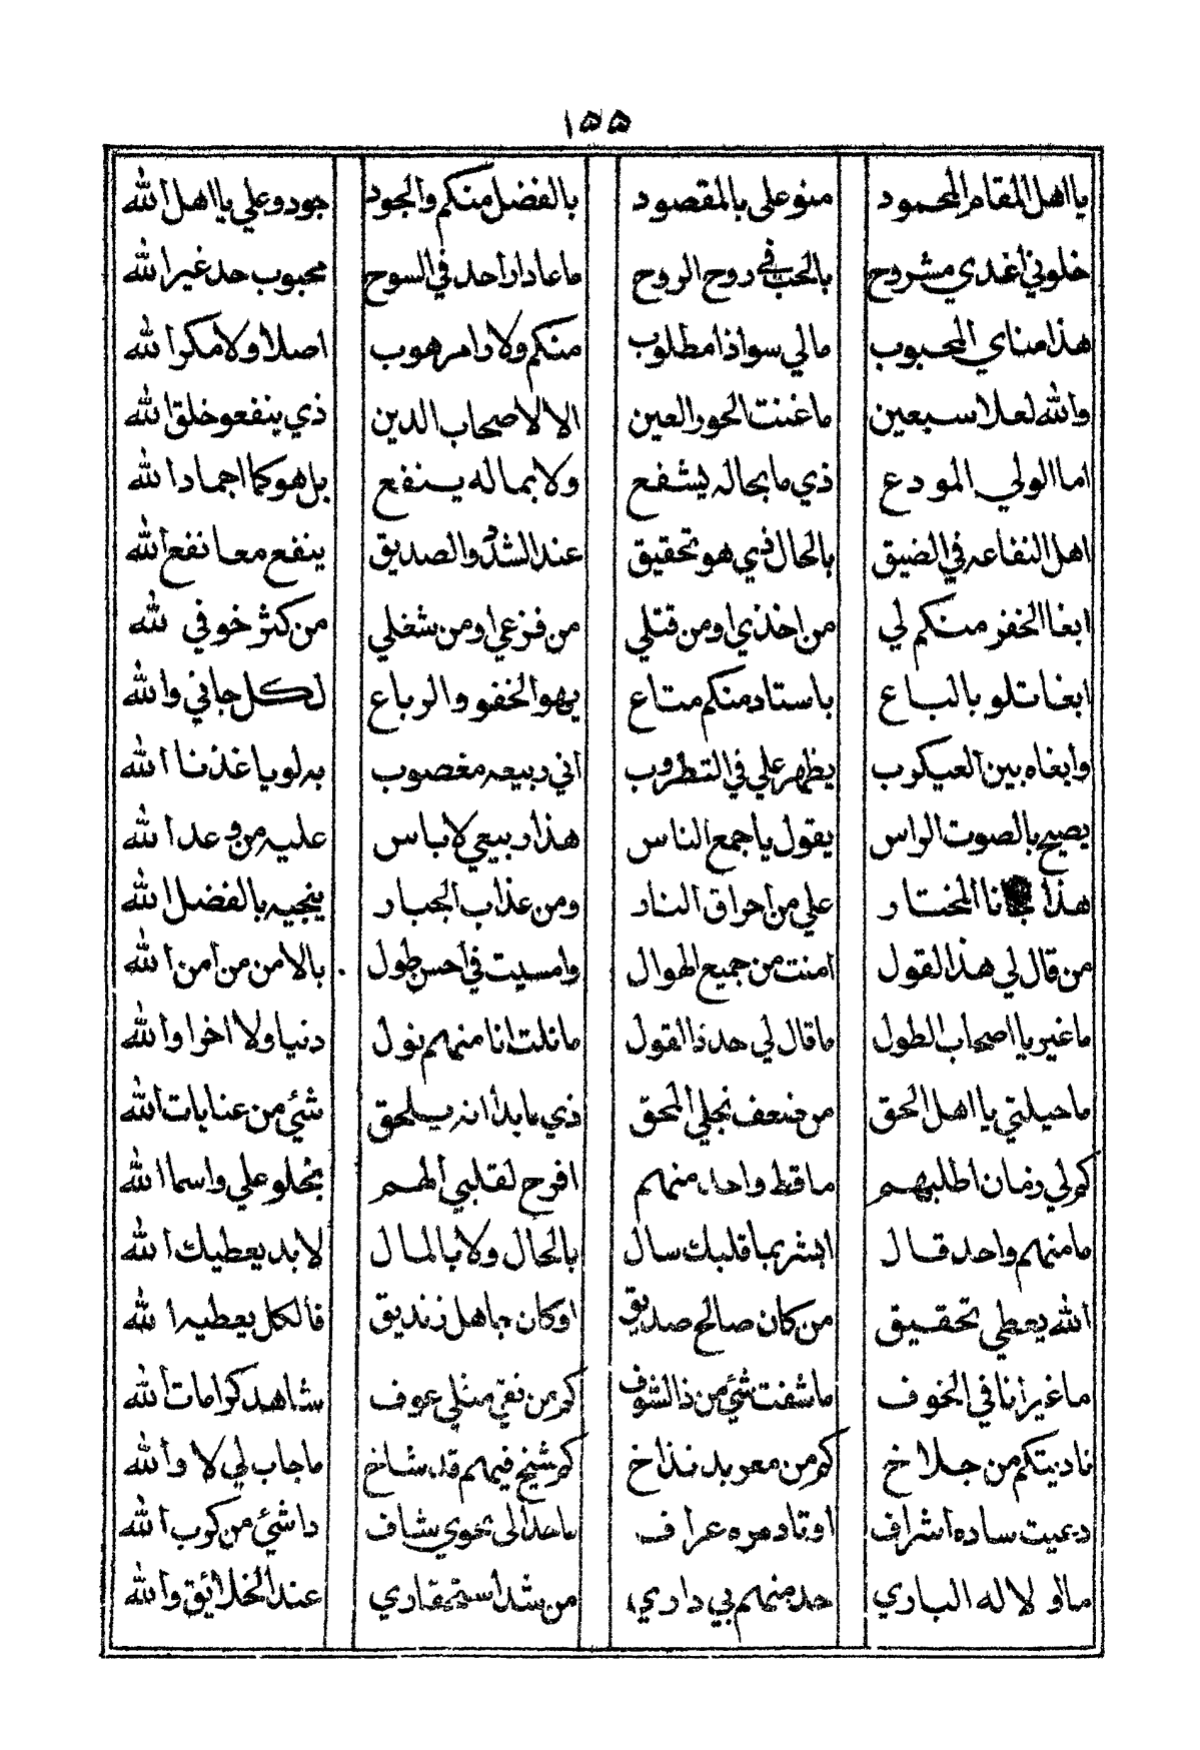 ١٥٥
يا اهل المقام المحمود منو علي بالمقصود بالفضل منكم والجود جودو علي يا اهل الله
خلوني اغدي مشروح بالحب في روح الروح ما عاد ارا احد في السوح محبوب حد غير الله
هذا مناي المحبوب مالي سوا ذا مطلوب منكم ولا دا مرهوب اصلا ولا مكر الله
والله لعلا سبعين ما غنت الحور العين الا لاصحاب الدين ذي ينفعو خلق الله
اما الولي المودع ذي ما بحاله يشفع ولا بماله ينفع بل هو كما اجماد الله
اهل النفاعه في الضيق بالحال ذي هو تحقيق عند الشد والصديق ينفع معا نفع الله
ابغا الخفر منكم لي من اخذي او من قتلي من فزعي او من شغلي من كثر خوفي لله
ابغا تلو بالباع باستاد منكم متاع يهو الخفو والرباع لكل جاني والله
وابغاه بين العيكروب يظهر علي في التطروب اني ربيعه مغصوب به لو يا غذنا الله
يصيح بالصوت الراس يقول يا جمع الناس هذا ربيعي لا باس عليه من وعد الله
هذا انا المختار علي من احراق النار ومن عذاب الجبار ينجيه بالفضل الله
من قال لي هذا القول امنت من جميع الهوال وامسيت في احسن طول بالامن من امن الله
ما غير يا اصحاب الطول ما قال لي حد ذا القول ما نلت انا منهم نول دنيا ولا اخرا والله
ما حيلتي يا اهل الحق من ضعف نجلي المحق ذي ما بدا انه يلحق شئ من عنايات الله
كم لي زمان اطلبهم ما قط واحد منهم افرح لقلبي الهم بخلو علي واسما الله
ما منهم واحد قال ابشر بما قلبك سال بالحال ولا بالمال لا بد يعطيك الله
الله يعطي تحقيق من كان صالح صديق او كان جاهل زنديق فالكل يعطيه الله
ما غير انا في الخوف ما شفت شئ من ذا الشوف كم من نقي مثلي عوف شاهد كرامات الله
ناديتكم من جلاخ كم من معربد نذاخ كم شيخ فيهم قد شاخ ما جاب لي لا والله
دعيت ساده اشراف اوتاد مره عراف ما حد الى نحوي شاف داشئ من كرب الله
مالو لا له الباري حد منهم بي داري من شد استحقاري عند الخلائق والله